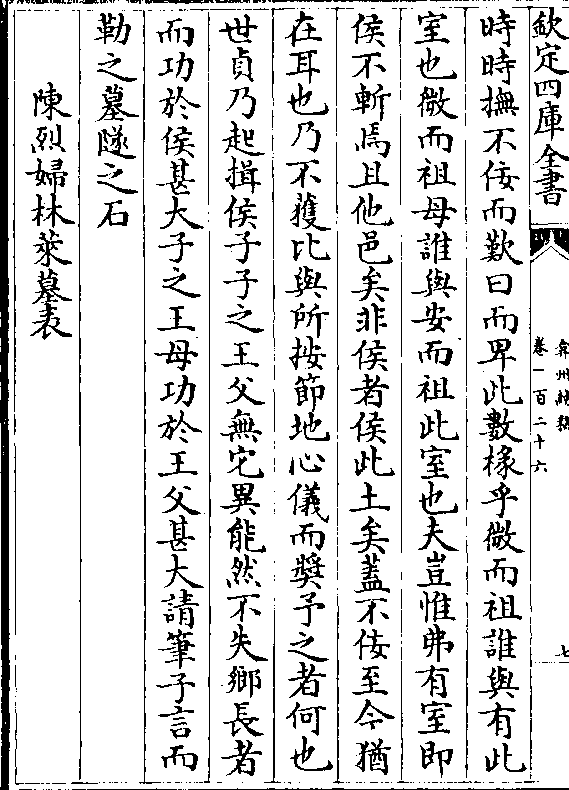 欽定四庫全書
弇州續稿
卷一百二十六
七
時時撫不佞而歎曰而卑此數椽乎微而祖誰與有此
室也微而祖母誰與安而祖此室也夫豈惟弗有室即
侯不斬焉且他邑矣非侯者侯此土矣蓋不佞至今猶
在耳也乃不獲比與所按節地心儀而獎予之者何也
世貞乃起揖侯子子之王父無它異能然不失鄉長者
而功於侯甚大子之王母功於王父甚大請筆子言而
勒之墓隧之石
陳烈婦林萊墓表